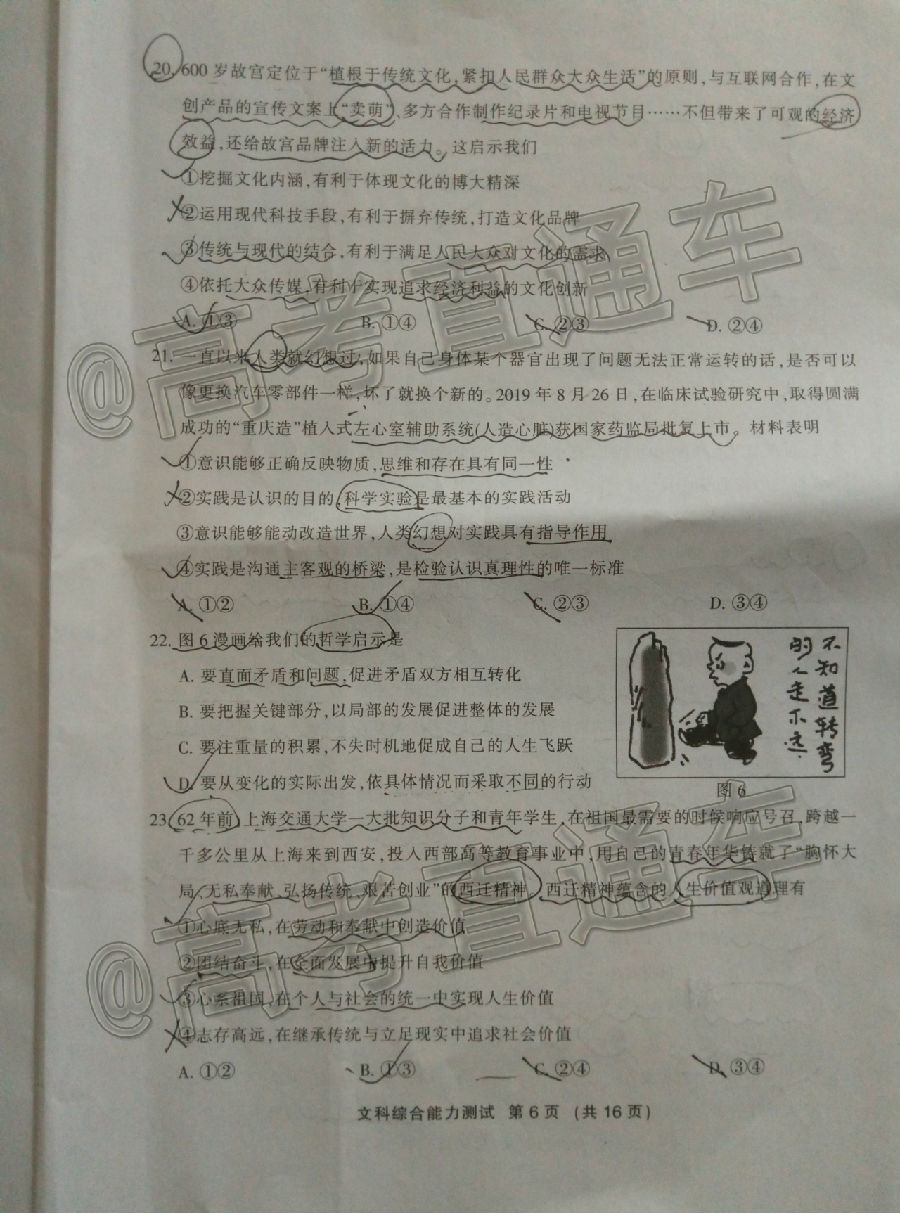 20. 600 岁故宫定位于“植根于传统文化,紧扣人民群众大众生活”的原则,与互联网合作,在文
创产品的宣传文案上“卖萌”,多方合作制作纪录片和电视节目……不但带来了可观的经济
效益,还给故宫品牌注入新的活力。这启示我们
①挖掘文化内涵,有利于体现文化的博大精深
②运用现代科技手段,有利于摒弃传统,打造文化品牌
③传统与现代的结合,有利于满足人民大众对文化的需求
④依托大众传媒,有利于实现追求经济利益的文化创新
A. ①③ B. ①④ C. ②③ D. ②④
@高考直通车
21. 一直以来人类就幻想过,如果自己身体某个器官出现了问题无法正常运转的话,是否可以
像更换汽车零部件一样,坏了就换个新的。2019 年 8 月 26 日,在临床试验研究中,取得圆满
成功的“重庆造”植入式左心室辅助系统(人造心脏)获国家药监局批复上市。材料表明
①意识能够正确反映物质,思维和存在具有同一性
②实践是认识的目的,科学实验是最基本的实践活动
③意识能够能动改造世界,人类幻想对实践具有指导作用
④实践是沟通主客观的桥梁,是检验认识真理性的唯一标准
A. ①② B. ①④ C. ②③ D. ③④
22. 图 6 漫画给我们的哲学启示是
A. 要直面矛盾和问题,促进矛盾双方相互转化
B. 要把握关键部分,以局部的发展促进整体的发展
C. 要注重量的积累,不失时机地促成自己的人生飞跃
D. 要从变化的实际出发,依具体情况而采取不同的行动
不知道转弯
的人走不远
图 6
23. 62 年前,上海交通大学一大批知识分子和青年学生,在祖国最需要的时候响应号召,跨越一
千多公里从上海来到西安,投入西部高等教育事业中,用自己的青春年华铸就了“胸怀大
局,无私奉献,弘扬传统,艰苦创业”的西迁精神。西迁精神蕴含的人生价值观道理有
①心底无私,在劳动和奉献中创造价值
②团结奋斗,在全面发展中提升自我价值
③心系祖国,在个人与社会的统一中实现人生价值
④志存高远,在继承传统与立足现实中追求社会价值
A. ①② B. ①③ C. ②④ D. ③④
@高考直通车
文科综合能力测试 第 6 页 (共 16 页)